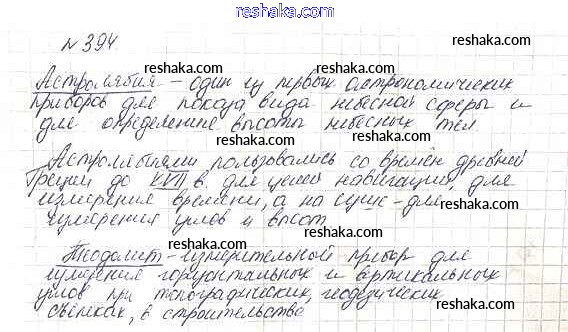 reshaka.com
N 394
reshaka.com
reshaka.com
Астролябия - один из первых астрономических
приборов для показа вида небесной сферы и
для определение высоты небесных тел.
reshaka.com
reshaka.com
Астролябиями пользовались со времён древней
Греции до XVII в. для целей навигации, для
измерения времени, а на суше - для
измерения углов и высот
reshaka.com
reshaka.com
reshaka.com
reshaka.com
Теодолит - измерительной прибор для
измерения горизонтальных и вертикальных
углов при топографических, геодезических
съёмках, в строительстве
reshaka.com
reshaka.com
reshaka.com